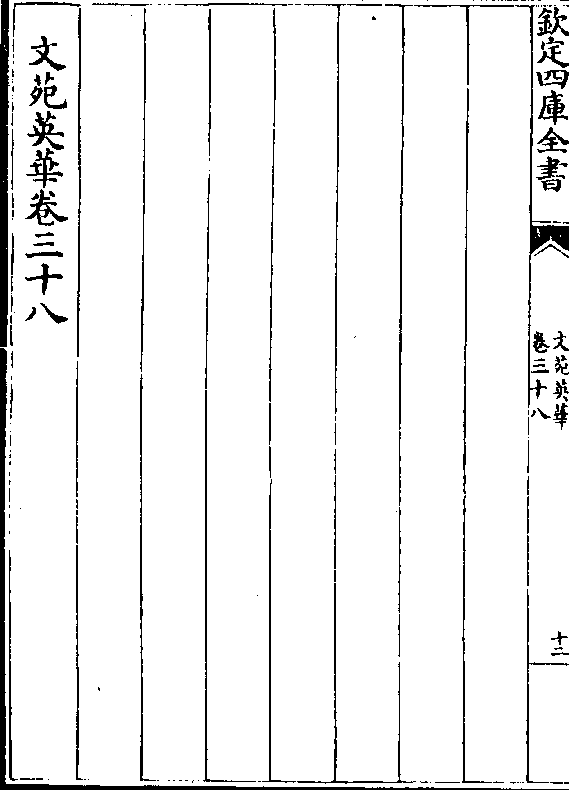 欽定四庫全書
文苑英華
卷三十八
十二
文苑英華卷三十八